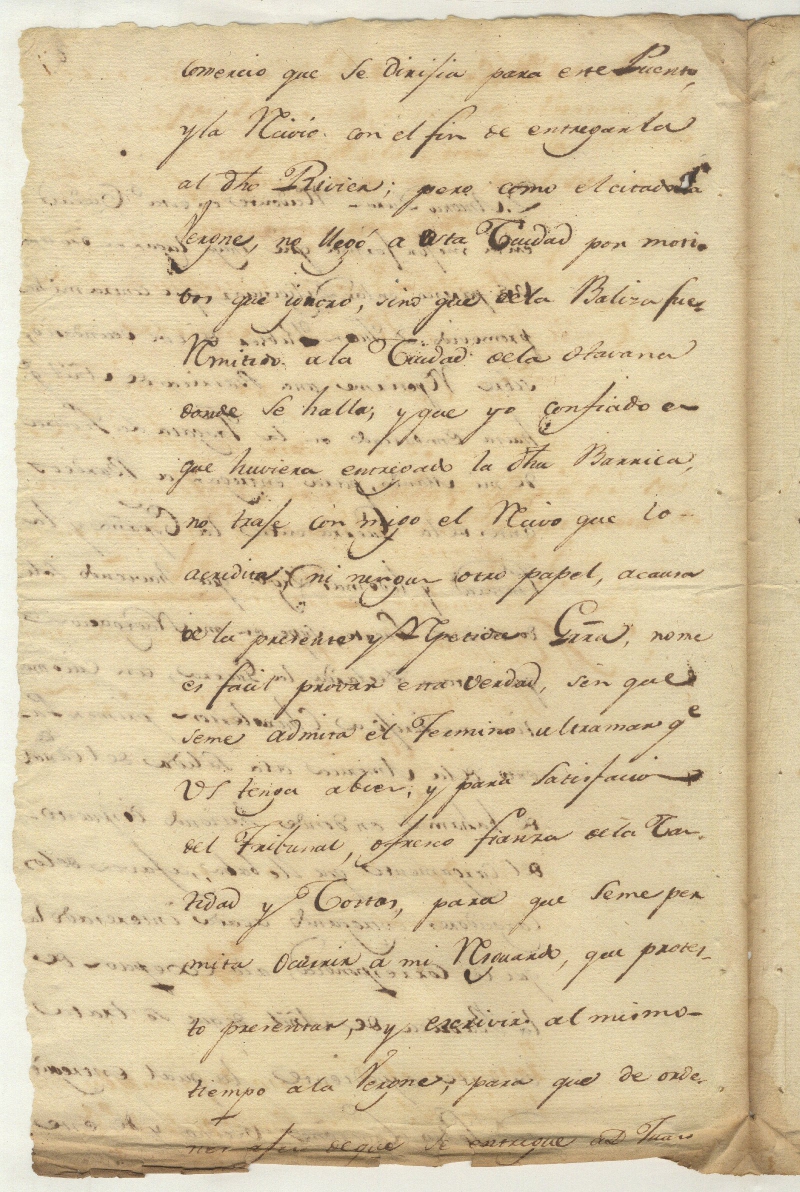 Comercio que se dirisia para este Puerto,
y la Recivió con el fin de entregarla
al dho Rivier; pero como el citado La
Vergne, no llegó a esta Ciudad por moti-
bos que ignoro, sino que de la Baliza fue
Remitido a la Ciudad de la Havana
donde se halla, y que yo confiado e-
que huviera entregado la dha Barrica,
no traje conmigo el Recivo que lo-
acredita, ni ningun otro papel, acausa
de la presente y Repetida Grra, nome
es facil provar esta verdad, sin que
seme admita el Termino ultramar qe
VS tenga abien; y para satisfacion
del Tribunal, ofresco fianza de la Can-
tidad y Costas, para que seme per
mita Ocurrir a mi Resguardo, que protes-
to presentar, y escrivir al mismo-
tiempo a la Vergne, para que de orde-
nes afin de que se entregue a D. Juan